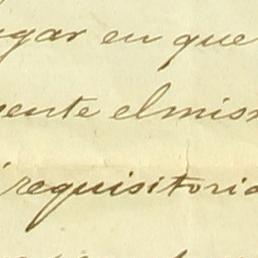 ugar en que
mente el mism
requisitoria